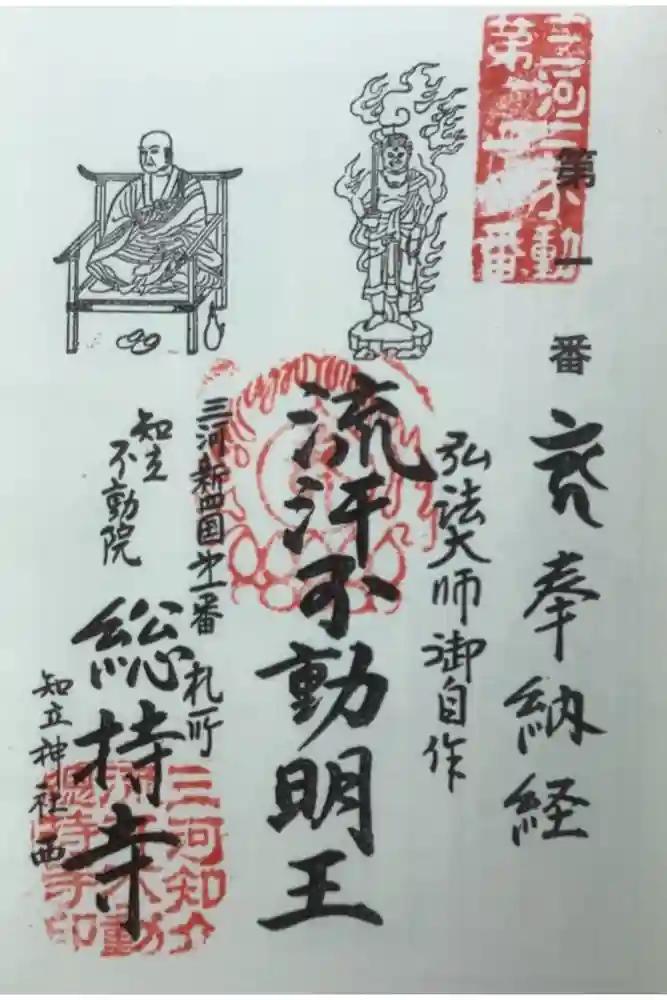 第一番
奉納経
弘法大師御自作
流汗不動明王
三河新四国第一番札所
知立
不動院
総持寺
知立神社西
三河三不動
第
番
三河知
総持寺印